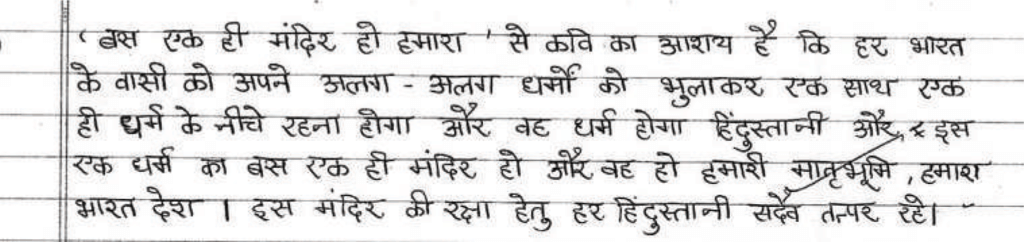 ‘ बस एक ही मंदिर हो हमारा ’ से कवि का आशय है कि हर भारत
के वासी को अपने अलग - अलग धर्मों को भुलाकर एक साथ एक
ही धर्म के नीचे रहना होगा और वह धर्म होगा हिंदुस्तानी और इस
एक धर्म का बस एक ही मंदिर हो और वह हो हमारी मातृभूमि , हमारा
भारत देश । इस मंदिर की रक्षा हेतु हर हिंदुस्तानी सदैव तत्पर रहे।